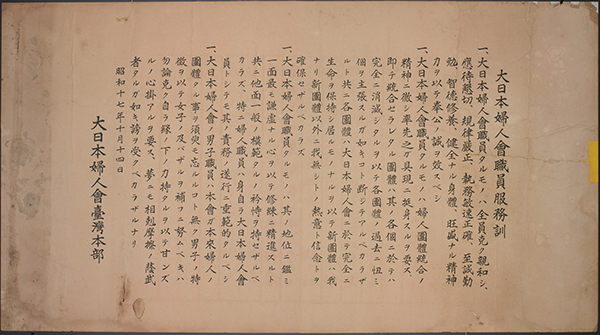 大日本婦人會職員服務訓
一、大日本婦人會職員タルモノハ全員克ク親和シ、
應待懇切、規律嚴正、執務敏速正確、至誠勤
勉、智德修養、健全ナル身體、旺盛ナル精神
力ヲ以テ奉公ノ誠ヲ效スベシ
一、大日本婦人會職員タルモノハ婦人團體統合ノ
精神ニ徹シ率先之ガ具現ニ挺身スルヲ要ス、
即チ統合セラレタル團體ハ其ノ各個ニ於テハ
完全ニ消滅シタルヲ以テ各團體ノ過去ニ泥ミ
個ヲ主張スルガ如キコト斷ジテアルベカラザ
ルト共ニ各團體ハ大日本婦人會ニ於テ完全ニ
生命ヲ保持シ居ルモノナルヲ以テ新團體ハ我
ナリ新團體以外ニ我無シトノ熱意ト信念トヲ
確保セザルベカラズ
一、大日本婦人會職員タルモノハ其ノ地位ニ鑑ミ
一面最モ謙虛ナル心ヲ以テ修練ニ精進スルト
共ニ他面一般ノ模範タルノ矜恃ヲ持セザルベ
カラズ、特ニ婦人職員ハ身自ラ大日本婦人會
員トシテモ其ノ責務ノ遂行ニ垂範的タルベシ
一、大日本婦人會ノ男子職員ハ本會ガ本來婦人ノ
團體タル事ヲ須臾モ忘ルルコト無ク男子ノ特
徵ヲ以テ女子ノ及バザルヲ補フニ努ムベキハ
勿論克ク自ラ緣ノ下ノ力持タルヲ以テ甘ンズ
ルノ心掛アルヲ要ス、夢ニモ相剋摩擦ノ
者タルガ如キ謗ヲ受クベカラザルナリ
昭和十七年十月十四日
大日本婦人會臺灣本部